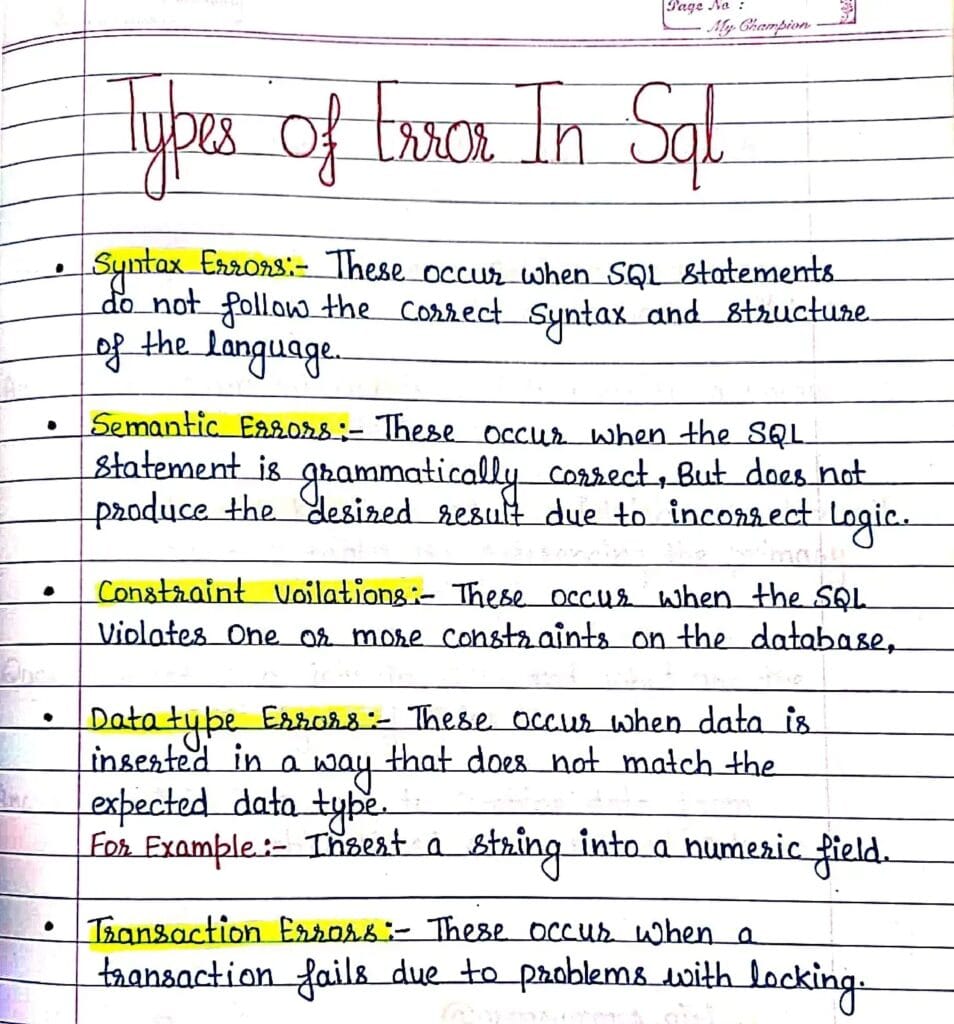 Page No :
My Champion
Types Of Error In Sql
• Syntax Errors:- These occur when SQL statements
do not follow the correct syntax and structure
of the language.
• Semantic Errors:- These occur when the SQL
statement is grammatically correct, But does not
produce the desired result due to incorrect logic.
• Constraint Voilations:- These occur when the SQL
Violates One or more constraints on the database,
• Data type Errors:- These occur when data is
inserted in a way that does not match the
expected data type.
For Example:- Insert a string into a numeric field.
• Transaction Errors:- These occur when a
transaction fails due to problems with locking.